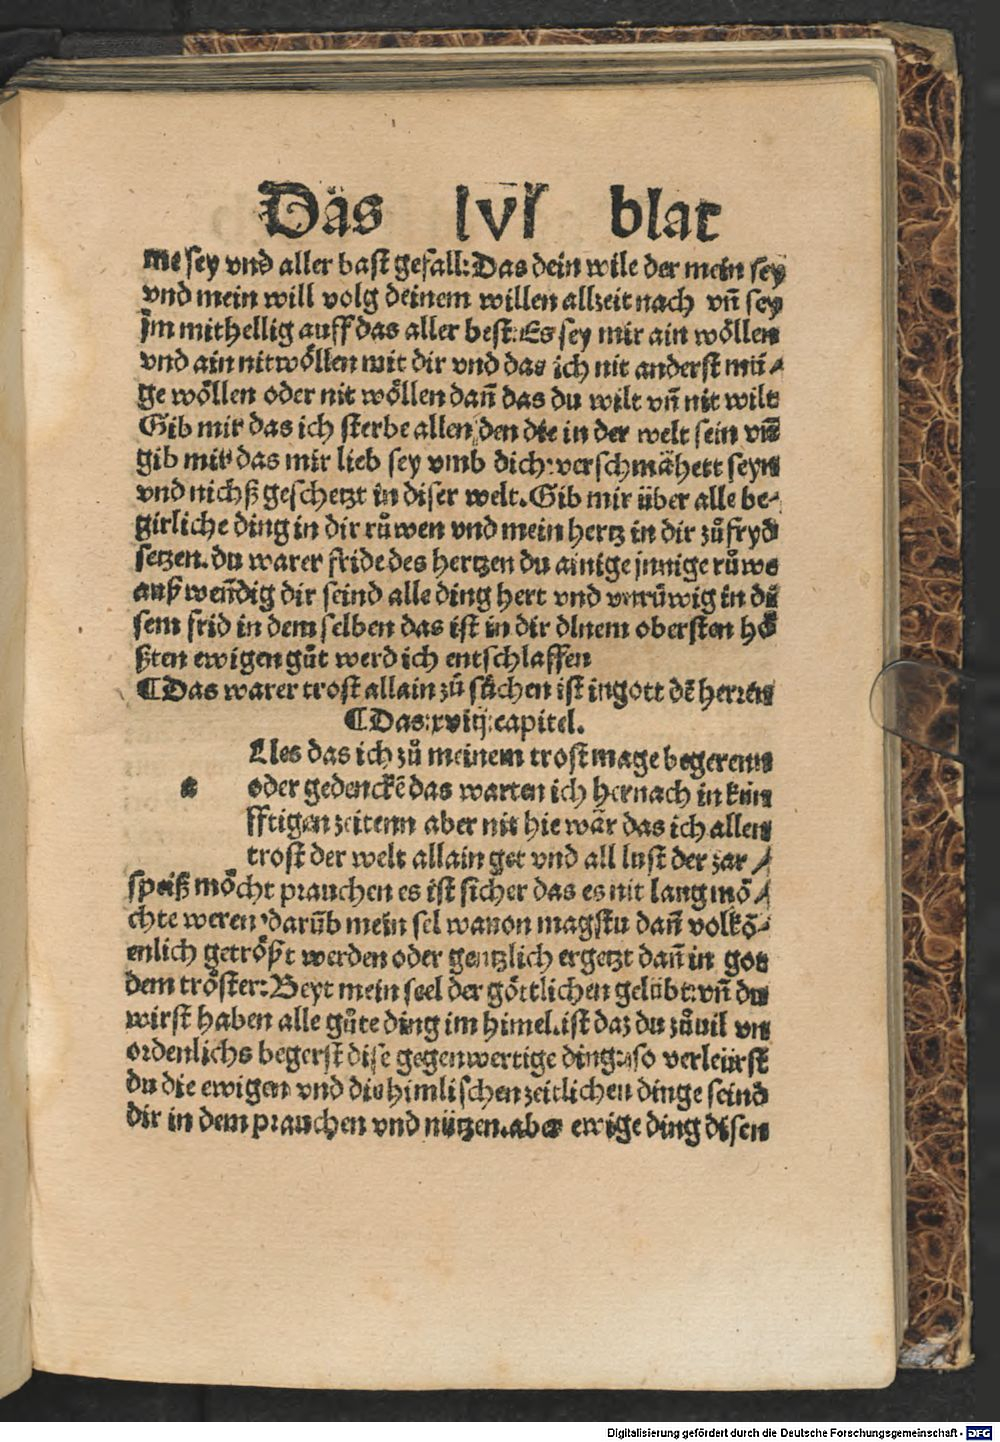 Das lvi blat
me sey vnd aller bast gefall: Das dein wile der mein sey
vnd mein will volg deinem willen allzeit nach vn̄ sey
jm mithellig auff das aller best: Es sey mir ain wöllen
vnd ain nitwöllen mit dir vnd das ich nit anderst mü⸗
ge wöllen oder nit wöllen dan̄ das du wilt vn̄ nit wilt
Gib mir das ich sterbe allen den die in der welt sein vn̄
gib mir das mir lieb sey vmb dich: verschmähett seyn
vnd nichß geschetzt in diser welt. Gib mir über alle be⸗
girliche ding in dir růwen vnd mein hertz in dir zů fryd
setzen. du warer fride des hertzen du ainige jnnige růwe
auß wen̄dig dir seind alle ding hert vnd vnrüwig in di
sem frid in dem selben das ist in dir dinem obersten hö
ßten ewigen gůt werd ich entschlaffen
¶Das warer trost allain zů sůchen ist in gott dē herren
¶Das: xviij: capitel.
a Lles das ich zů meinem trost mage begerenn
oder gedenckē das warten ich hernach in kün
fftigen zeitenn aber nit hie wär das ich allen
trost der welt allain het vnd all lust der zar⸗
speiß möcht prauchen es ist sicher das es nit lang mö⸗
chte weren darūb mein sel wanon magstu dan̄ volkō⸗
enlich getrößt werden oder gentzlich ergetzt dan̄ in got
dem tröster: Beyt mein seel der göttlichen gelübt: vn̄ du
wirst haben alle gůte ding im himel. ist daz du zůuil vn
ordenlichs begerst dise gegenwertige ding: so verleürst
du die ewigen vnd die himlischen zeitlichen dinge seind
dir in dem prauchen vnd nützen. aber ewige ding disen
Digitalisierung gefördert durch die Deutsche Forschungsgemeinschaft - DFG